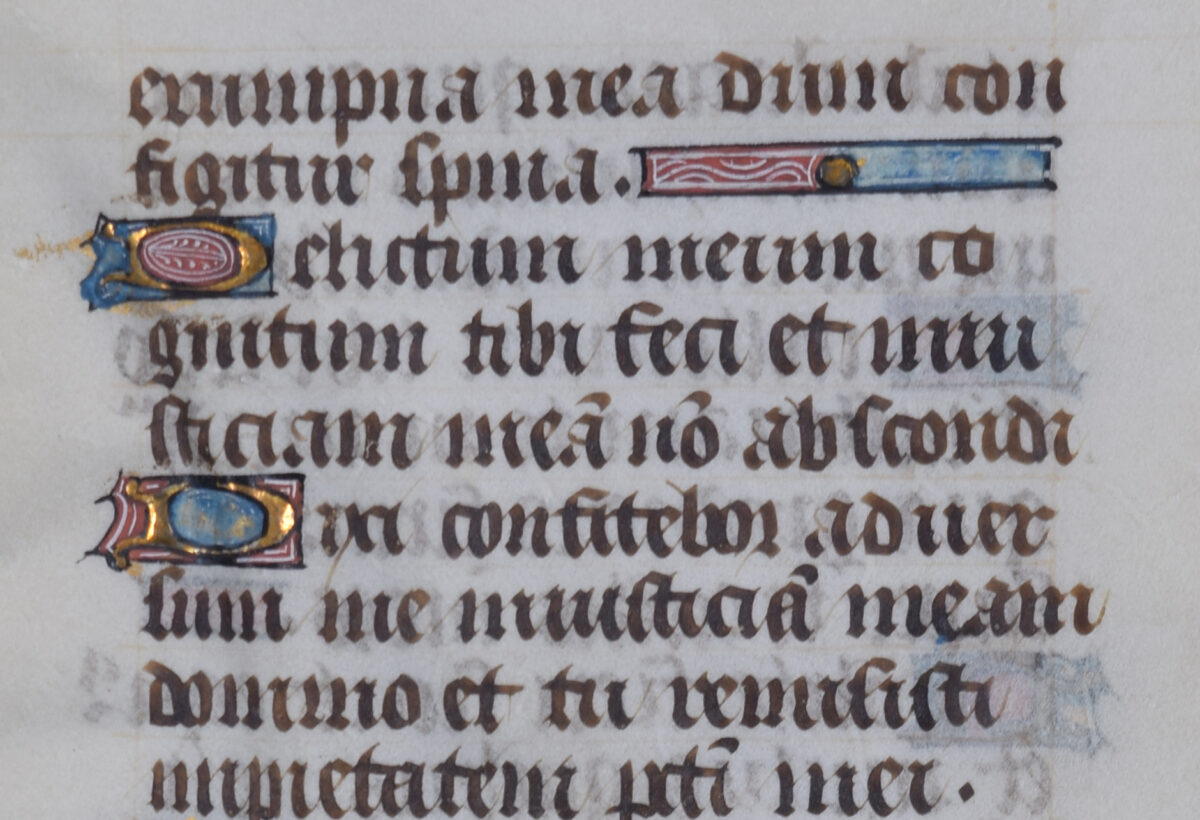 erumpna mea dum con
figitur spina.
Delictum meum co
gnitum tibi feci et iniu
sticiam meā nō abscondi
Dixi confitebor aduer
sum me iniusticiā meam
domino et tu remisisti
impietatem pctī mei.